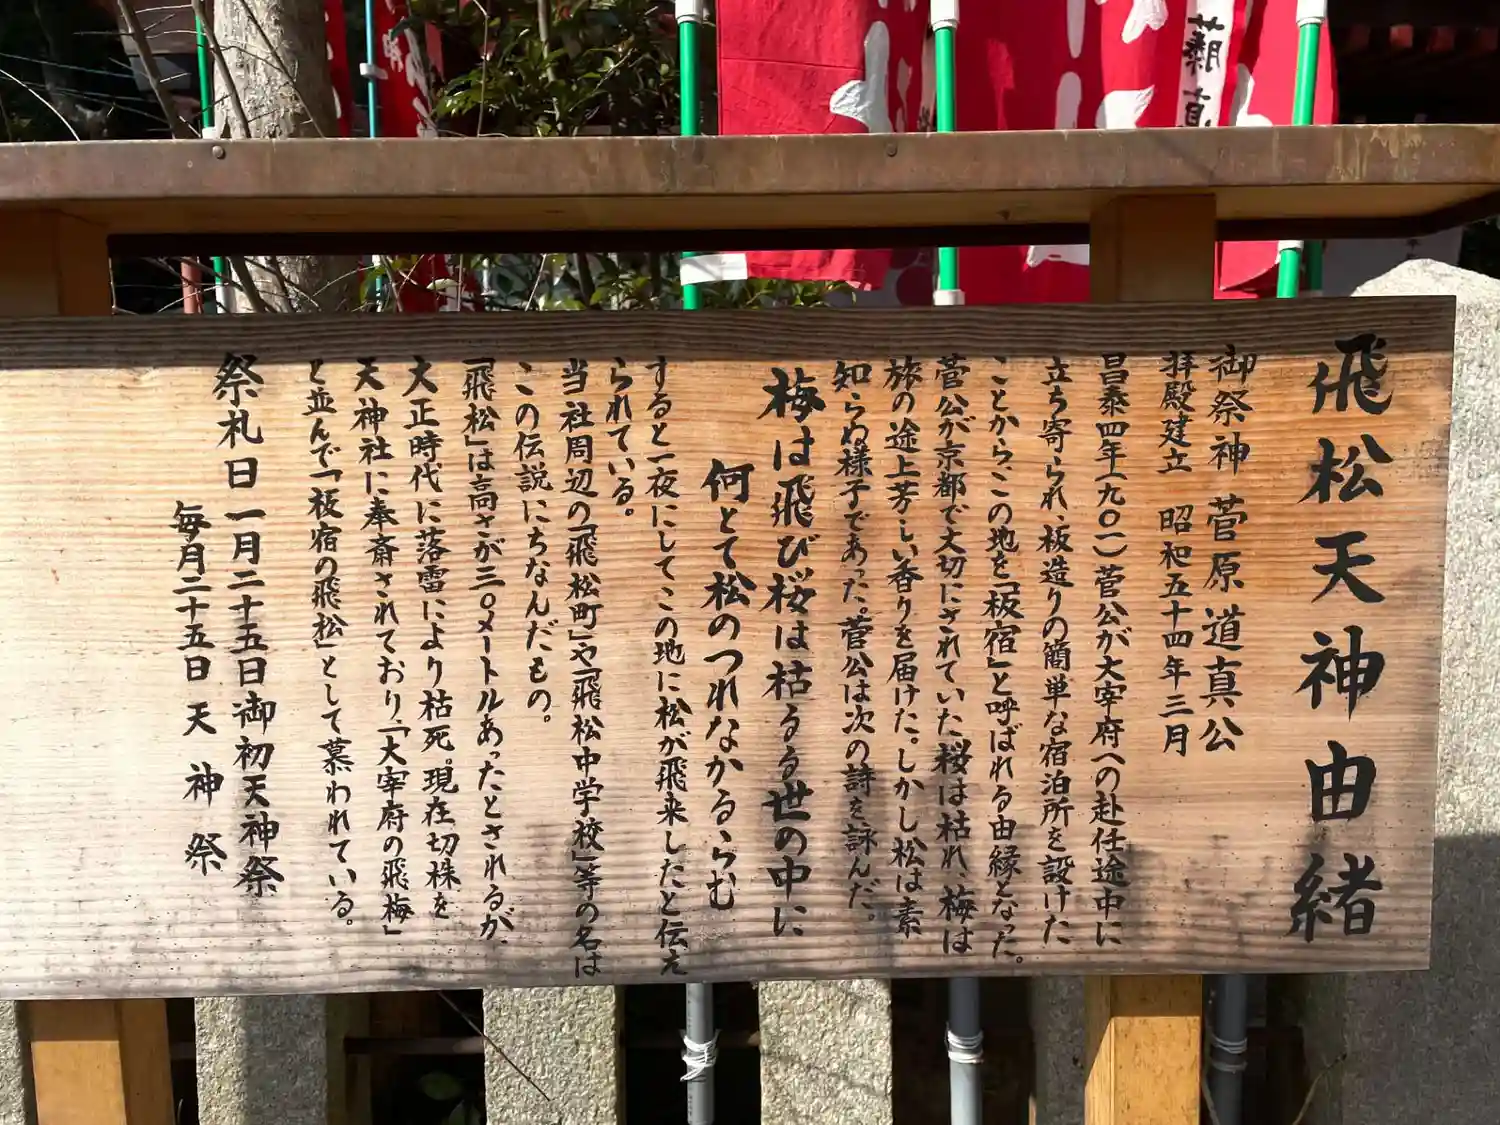 飛松天神由緒
御祭神 菅原道真公
拝殿建立 昭和五十四年三月
昌泰四年(九〇一)菅公が大宰府への赴任途中に
立ち寄られ、板造りの簡単な宿泊所を設けた
ことから、この地を「板宿」と呼ばれる由縁となった。
菅公が京都で大切にされていた桜は枯れ、梅は
旅の途上芳しい香りを届けた。しかし松は素
知らぬ様子であった。菅公は次の詩を詠んだ。
梅は飛び桜は枯るる世の中に
何とて松のつれなかるらむ
すると一夜にしてこの地に松が飛来したと伝え
られている。
当社周辺の「飛松町」や「飛松中学校」等の名は
この伝説にちなんだもの。
「飛松」は高さが三〇メートルあったとされるが、
大正時代に落雷により枯死。現在切株を
天神社に奉斎されており、「大宰府の飛梅」
と並んで「板宿の飛松」として慕われている。
祭礼日 一月二十五日 御初天神祭
毎月二十五日 天神祭
藤